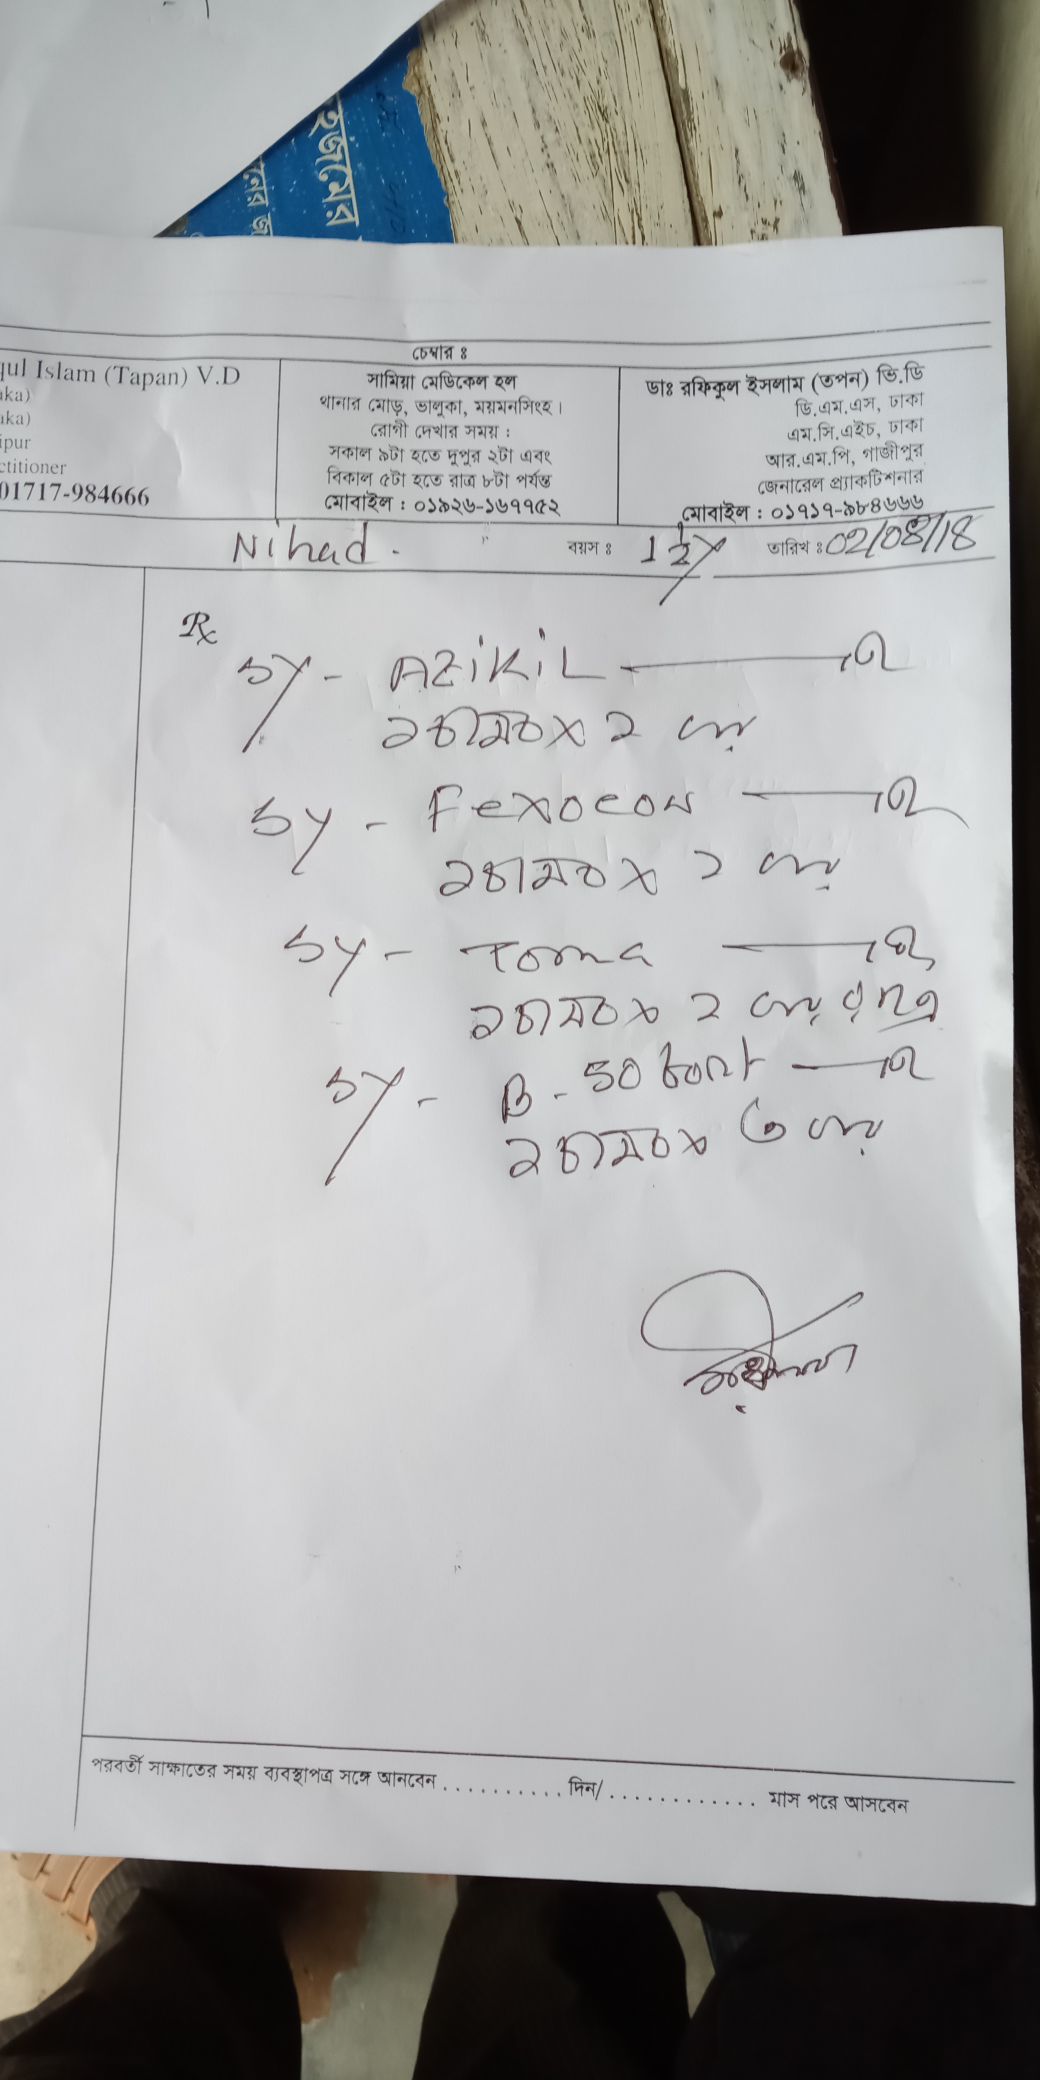 হজমের
নের জ
চেম্বার ঃ
qul Islam (Tapan) V.D
aka)
aka)
ipur
ctitioner
01717-984666
সামিয়া মেডিকেল হল
থানার মোড়, ভালুকা, ময়মনসিংহ।
রোগী দেখার সময় :
সকাল ৯টা হতে দুপুর ২টা এবং
বিকাল ৫টা হতে রাত্র ৮টা পর্যন্ত
মোবাইল : ০১৯২৬-১৬৭৭৫২
ডাঃ রফিকুল ইসলাম (তপন) ভি.ডি
ডি.এম.এস, ঢাকা
এম.সি.এইচ, ঢাকা
আর.এম.পি, গাজীপুর
জেনারেল প্র্যাকটিশনার
মোবাইল : ০১৭১৭-৯৮৪৬৬৬
Nihad. বয়স ঃ 1½y তারিখ ঃ 02/08/18
Rx
Sy - AZiKiL
২ চামচ x ২
Sy - Fexocon
২ চামচ x ২
Sy - Toma
২ চামচ x ২
Sy - B-50 fort
২ চামচ x ৩
পরবর্তী সাক্ষাতের সময় ব্যবস্থাপত্র সঙ্গে আনবেন .......... দিন/ ............ মাস পরে আসবেন